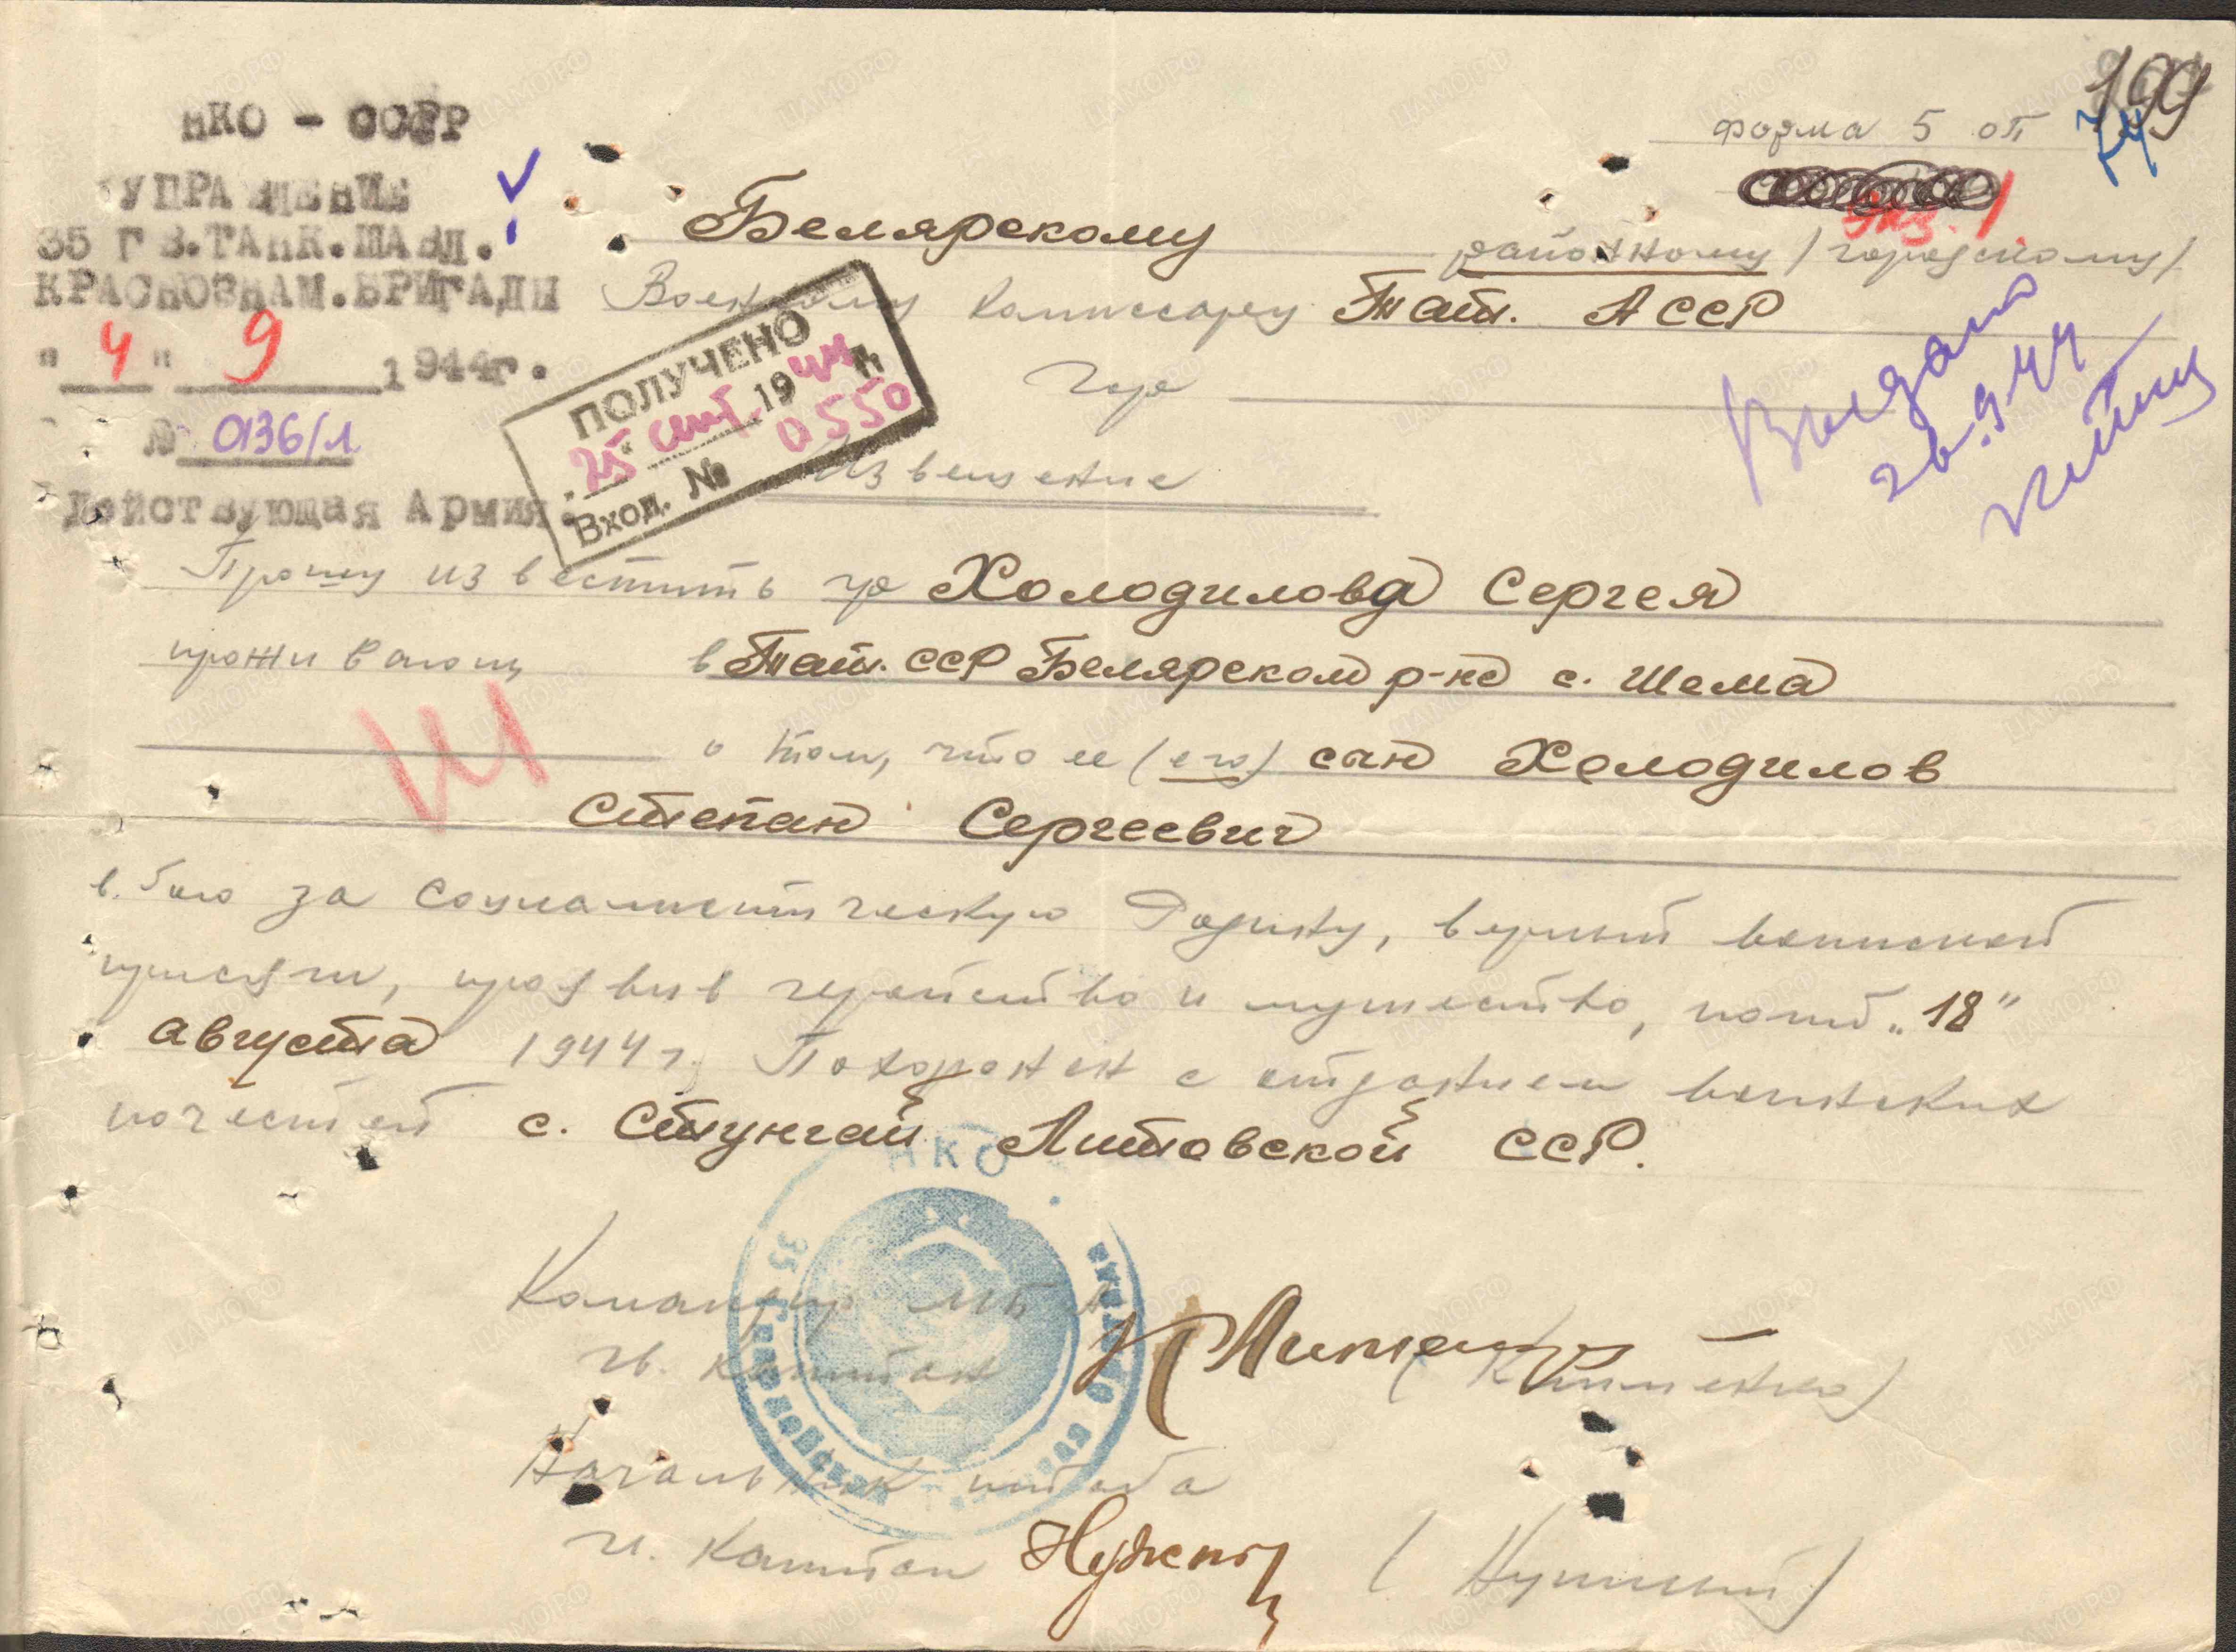 НКО - СССР
УПРАВЛЕНИЕ
35 ГВ.ТАНК.ШАВЛ.
КРАСНОЗНАМ.БРИГАДЫ
"4" 9 1944г.
№ 0136/л
Действующая Армия.
форма 5 оп
199
74
экз. 1
Белярскому районному /городскому/
Военному комиссару Тат. АССР
Гор
ПОЛУЧЕНО
25 сент. 1944 г.
Вход. № 0550
Выдано
26.9.44
Извещение
Прошу известить гр Холодилова Сергея
проживающ в Тат. ССР Белярском р-не с. Шема
о том, что ее (его) сын Холодилов
Степан Сергеевич
в бою за социалистическую Родину, верный воинской
присяге, проявив геройство и мужество, погиб „18"
августа 1944 г. Похоронен с отданием воинских
почестей с. Стунгай Литовской ССР.
НКО
35 Гвардейская
Командир МБА
гв. капитан (Клименко)
Начальник штаба
гв. капитан (Нужный)